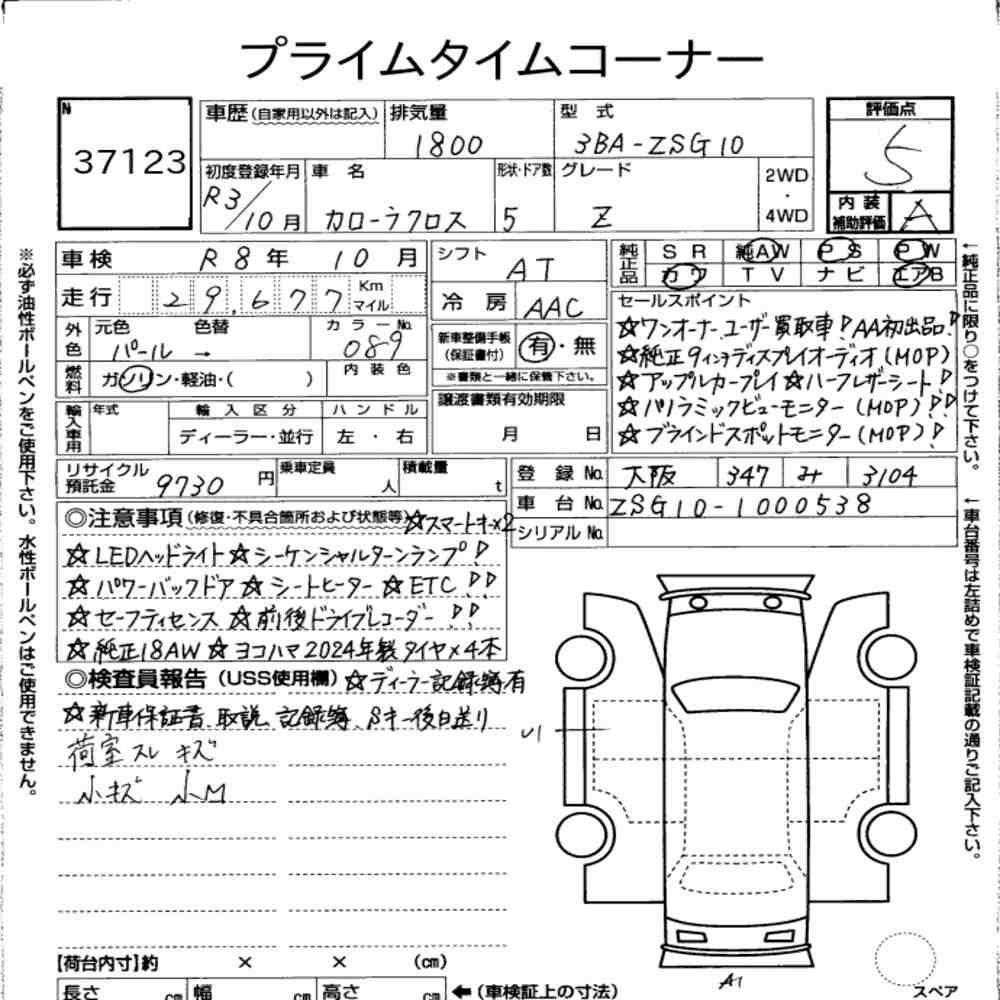 プライムタイムコーナー
N
37123
車歴(自家用以外は記入)
排気量
1800
型 式
3BA-ZSG10
評価点
5
初度登録年月
R3/10月
車 名
カローラクロス
形状・ドア数
5
グレード
Z
2WD
・
4WD
内 装
補助評価
A
車検 R8年 10月
走行 29,677 Km マイル
シフト AT
冷 房 AAC
純正品
SR 純AW PS PW
カワ TV ナビ エアB
外色
元色 色替
パール →
カラーNo.
089
内 装 色
燃料
ガソリン・軽油・( )
新車整備手帳
(保証書付)
有・無
※書類と一緒に保管下さい。
セールスポイント
☆ワンオーナーユーザー買取車!AA初出品!
☆純正9インチディスプレイオーディオ(MOP)
☆アップルカープレイ☆ハーフレザーシート!
☆パノラミックビューモニター(MOP)!!
☆ブラインドスポットモニター(MOP)!
輸入車用
年式
輸 入 区 分
ディーラー・並行
ハ ン ド ル
左 ・ 右
譲渡書類有効期限
月 日
リサイクル
預託金
9730円
乗車定員
人
積載量
t
登 録 No. 大阪 347 み 3104
車 台 No. ZSG10-1000538
シリアル No.
◎注意事項(修復・不具合箇所および状態等)☆スマートキー×2
☆LEDヘッドライト☆シーケンシャルターンランプ!
☆パワーバックドア☆シートヒーター☆ETC!!
☆セーフティセンス☆前後ドライブレコーダー!!
☆純正18AW☆ヨコハマ2024年製タイヤ×4本
◎検査員報告(USS使用欄)☆ディーラー記録簿有
☆新車保証書 取説 記録簿 Sキー後日送り
荷室スレ キズ
小キズ 小M
U1
A1
スペア
【荷台内寸】約 × × (cm)
長さ cm 幅 cm 高さ cm ←(車検証上の寸法)
※必ず油性ボールペンをご使用下さい。水性ボールペンはご使用できません。
←純正品に限り○をつけて下さい。
←車台番号は左詰めで車検証記載の通りご記入下さい。